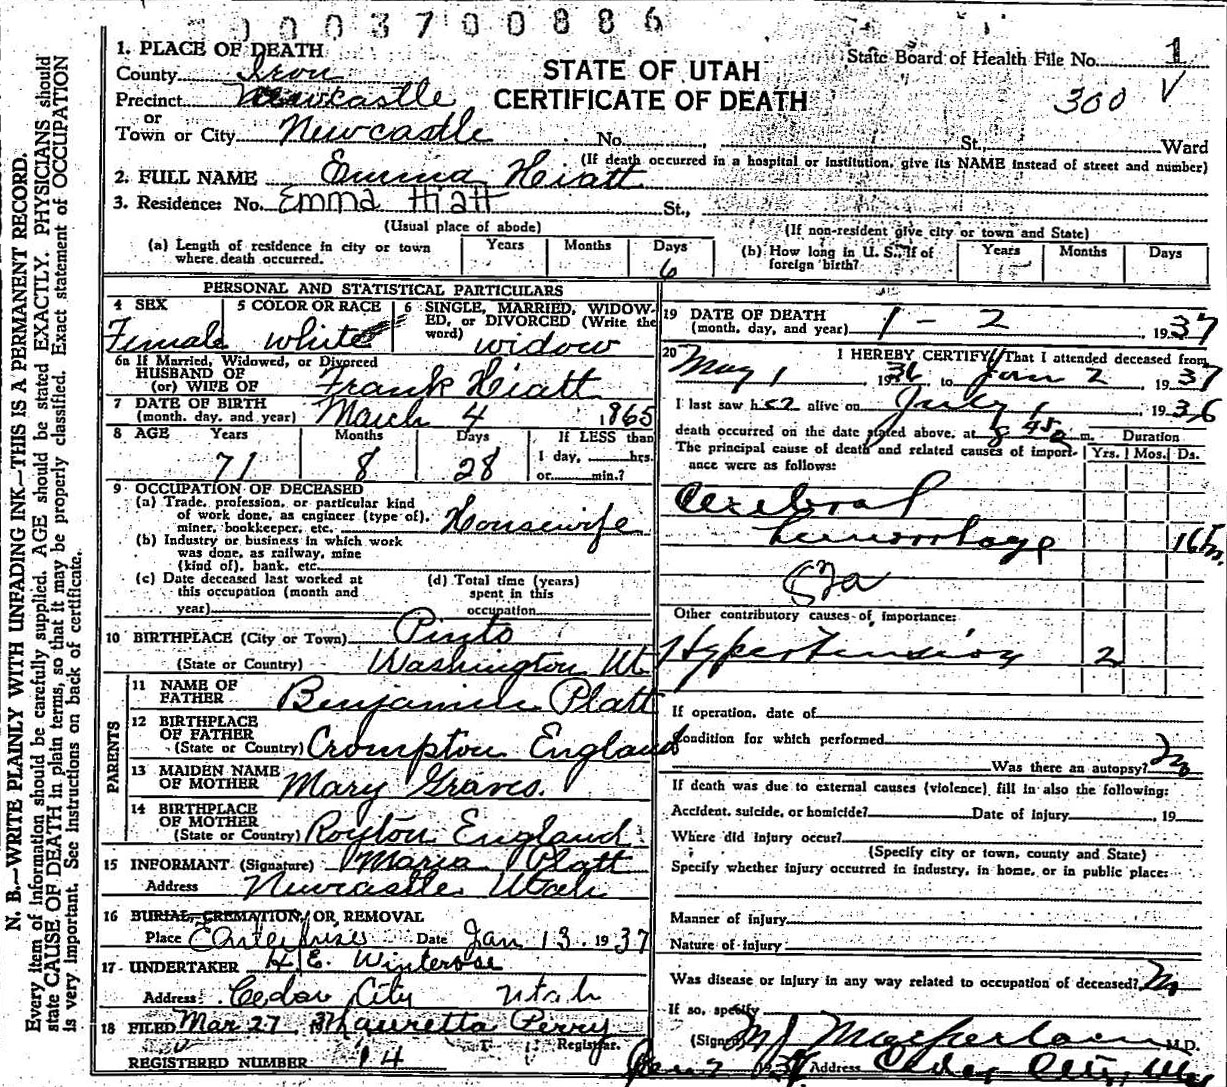 0003700886
1. PLACE OF DEATH
County Iron
Precinct Newcastle
or
Town or City Newcastle No. St., Ward
STATE OF UTAH
CERTIFICATE OF DEATH
State Board of Health File No. 1
300 V
(If death occurred in a hospital or institution, give its NAME instead of street and number)
2. FULL NAME Emma Hiatt
3. Residence: No. Emma Hiatt St.,
(Usual place of abode)
(If non-resident give city or town and State)
(a) Length of residence in city or town where death occurred. Years Months Days 6
(b) How long in U. S., if of foreign birth? Years Months Days
PERSONAL AND STATISTICAL PARTICULARS
4 SEX Female
5 COLOR OR RACE white
6 SINGLE, MARRIED, WIDOWED, or DIVORCED (Write the word) widow
6a If Married, Widowed, or Divorced
HUSBAND OF
(or) WIFE OF Frank Hiatt
7 DATE OF BIRTH
(month, day, and year) March 4 1865
8 AGE Years 71 Months 8 Days 28 If LESS than 1 day, hrs. or min.?
9 OCCUPATION OF DECEASED
(a) Trade, profession, or particular kind of work done, as engineer (type of), miner, bookkeeper, etc. Housewife
(b) Industry or business in which work was done, as railway, mine (kind of), bank, etc.
(c) Date deceased last worked at this occupation (month and year)
(d) Total time (years) spent in this occupation
10 BIRTHPLACE (City or Town) Pinto
(State or Country) Washington Ut
PARENTS
11 NAME OF FATHER Benjamin Platt
12 BIRTHPLACE OF FATHER
(State or Country) Crompton England
13 MAIDEN NAME OF MOTHER Mary Graves.
14 BIRTHPLACE OF MOTHER
(State or Country) Royton England
15 INFORMANT (Signature) Maria Platt
Address Newcastle Utah
16 BURIAL, CREMATION, OR REMOVAL
Place Enterprise Date Jan 13 1937
17 UNDERTAKER H. E. Winterose
Address: Cedar City Utah
18 FILED Mar 27, 1937 Lauretta Perry
Registrar.
REGISTERED NUMBER 14
19 DATE OF DEATH
(month, day, and year) 1 - 2 1937
20 I HEREBY CERTIFY, That I attended deceased from
May 1 1936 to Jan 2 1937
I last saw her alive on July 1 1936
death occurred on the date stated above, at 8 45 a m. Duration
The principal cause of death and related causes of importance were as follows: Yrs. Mos. Ds.
Cerebral
hemorrhage 16 hrs.
Other contributory causes of importance:
Hypertension 2
If operation, date of
Condition for which performed
Was there an autopsy? No
If death was due to external causes (violence) fill in also the following:
Accident, suicide, or homicide? Date of injury , 19
Where did injury occur?
(Specify city or town, county and State)
Specify whether injury occurred in industry, in home, or in public place:
Manner of injury
Nature of injury
Was disease or injury in any way related to occupation of deceased? No
If so, specify
(Signed) M J Macfarlane M.D.
Jan 7 1937 Address Cedar City, Utah
N. B.—WRITE PLAINLY WITH UNFADING INK—THIS IS A PERMANENT RECORD.
Every item of information should be carefully supplied. AGE should be stated EXACTLY. PHYSICIANS should
state CAUSE OF DEATH in plain terms, so that it may be properly classified. Exact statement of OCCUPATION
is very important. See Instructions on back of certificate.